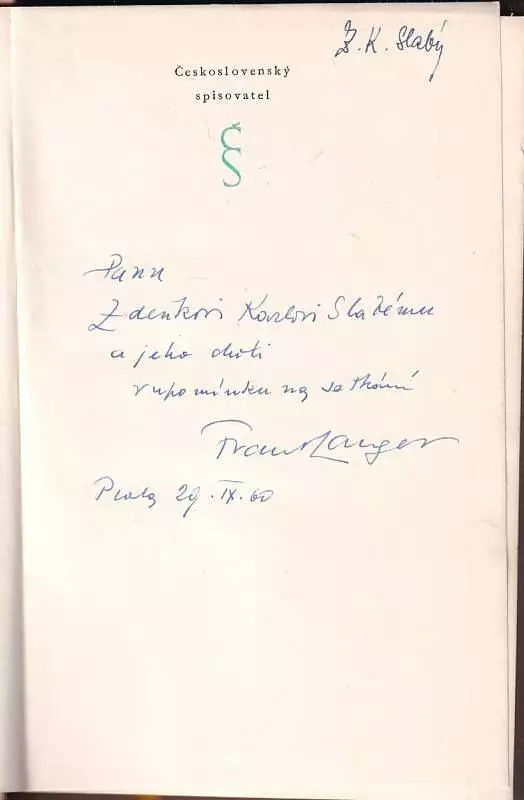 Z. K. Slabý
Československý
spisovatel
ČS
Panu
Zdenkovi Karlovi Slabému
a jeho choti
v upomínku na setkání
Frant Langer
Praha 29. IX. 60